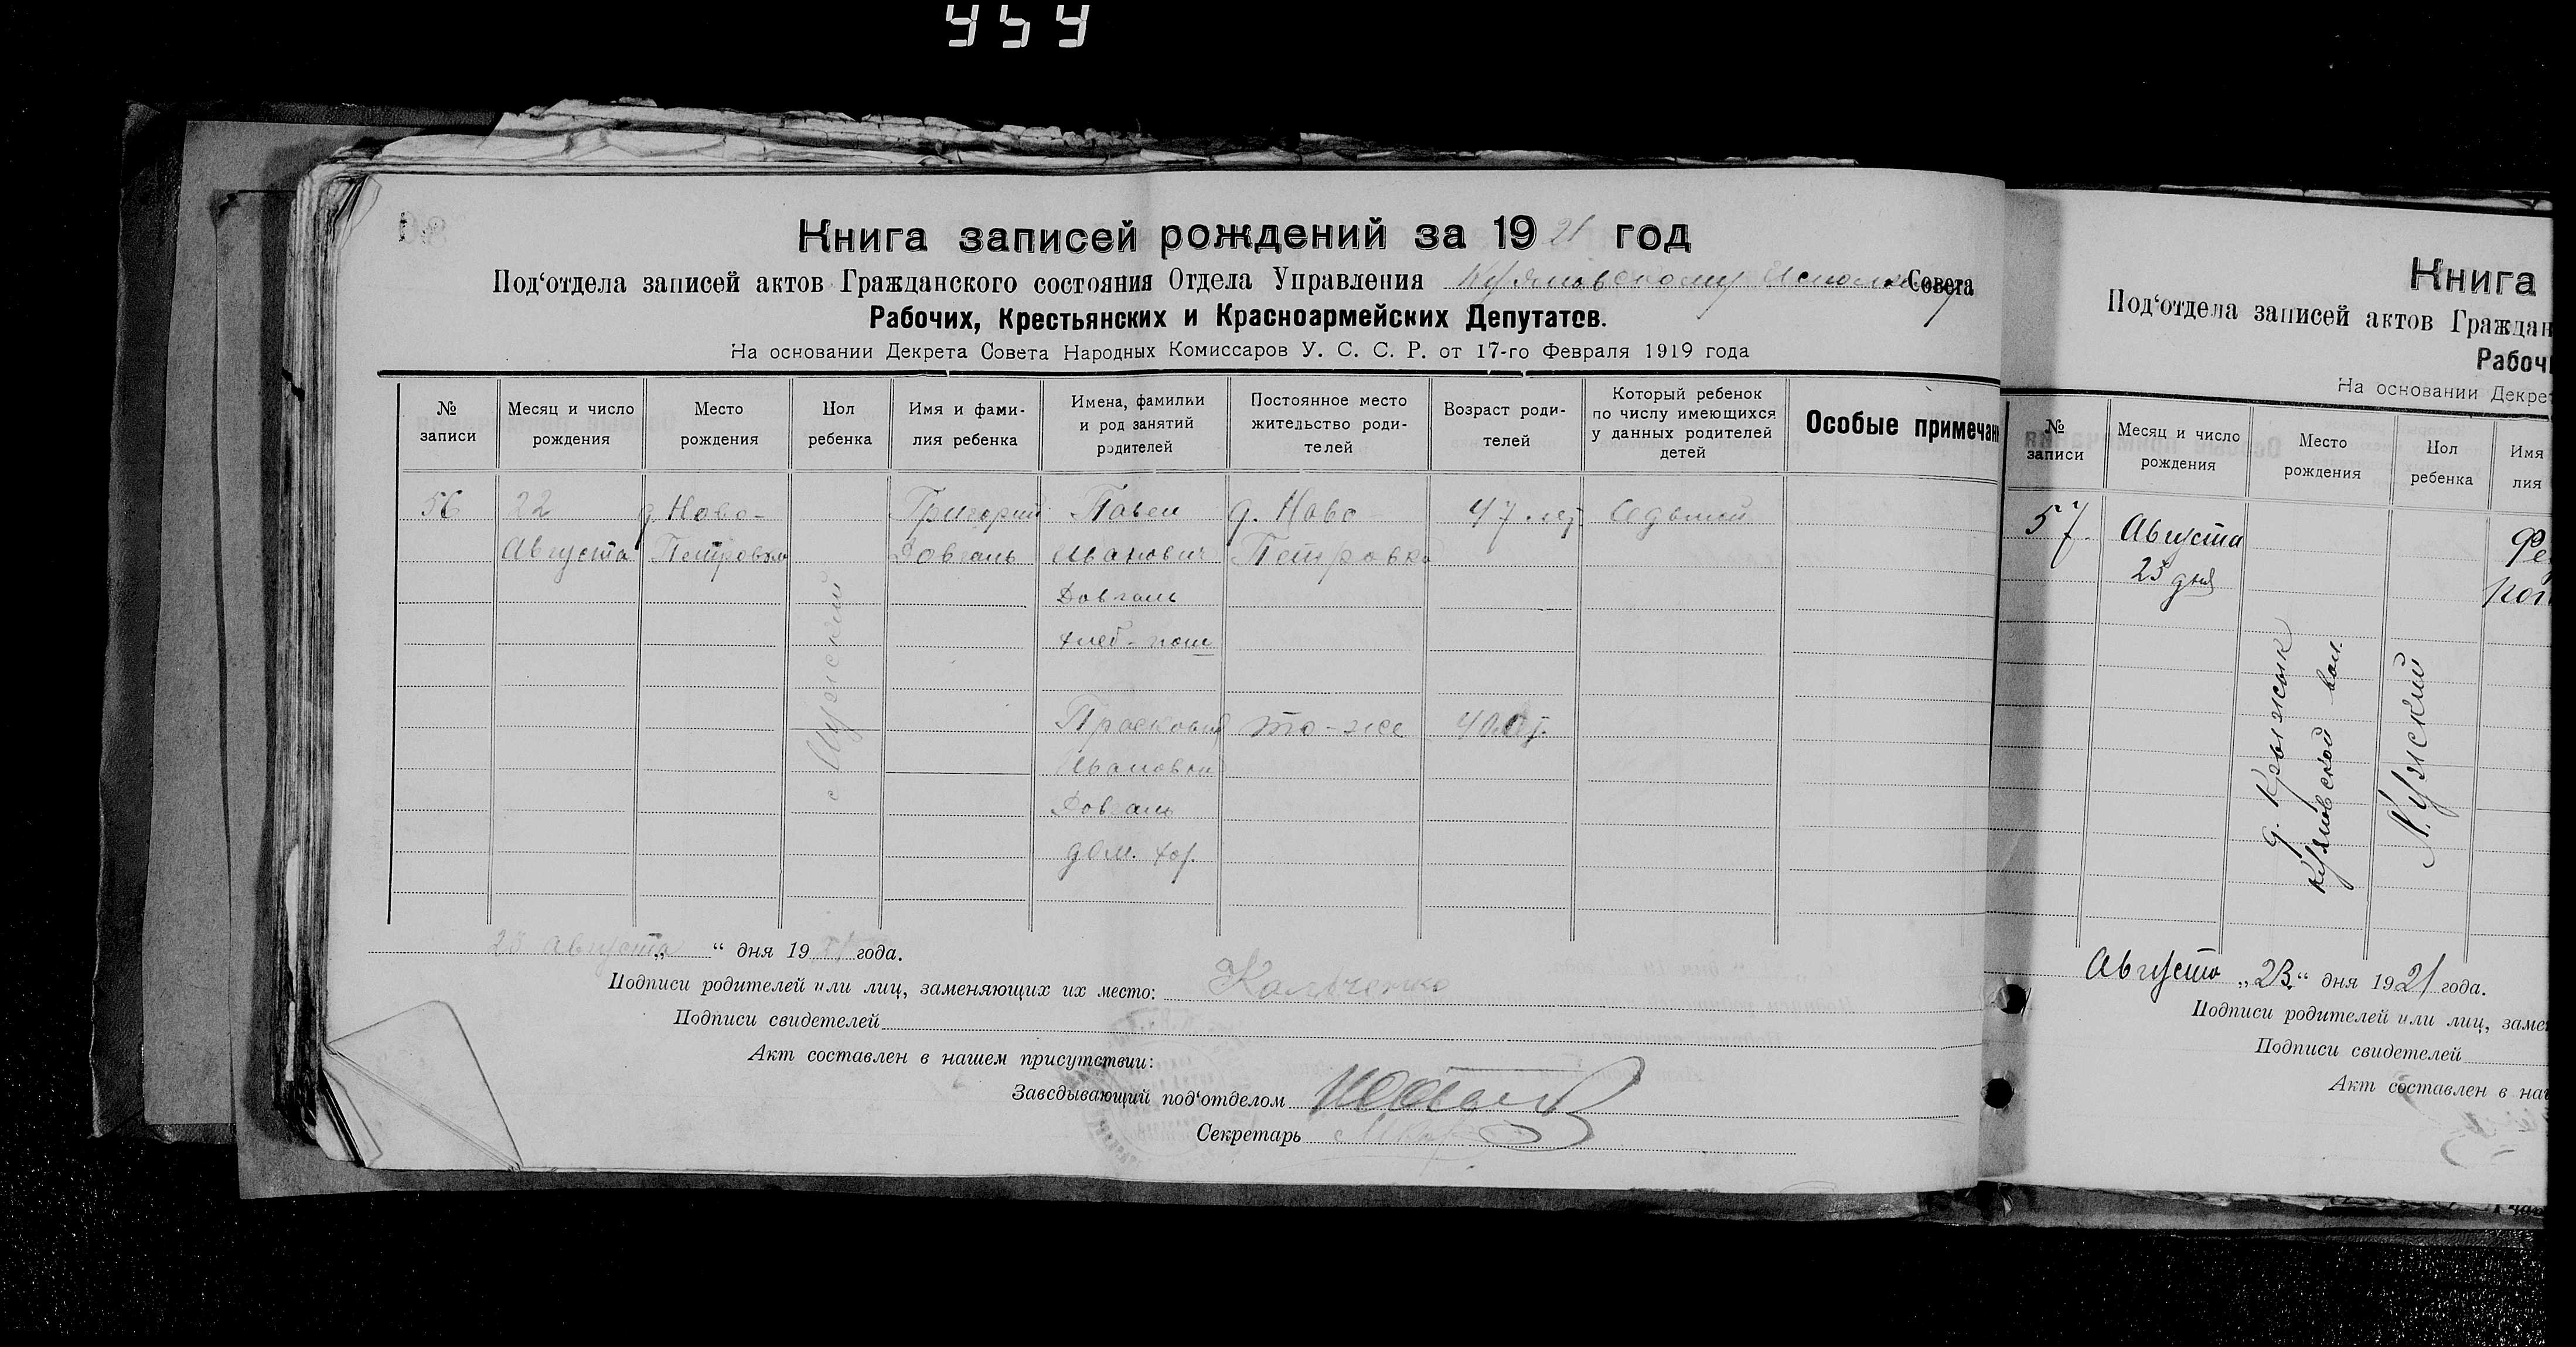 454
Книга записей рождений за 1921 год
Под‘отдела записей актов Гражданского состояния Отдела Управления Совета
Рабочих, Крестьянских и Красноармейских Депутатов.
На основании Декрета Совета Народных Комиссаров У. С. С. Р. от 17-го Февраля 1919 года
№ записи
Месяц и число рождения
Место рождения
Пол ребенка
Имя и фамилия ребенка
Имена, фамилии и род занятий родителей
Постоянное место жительство родителей
Возраст родителей
Который ребенок по числу имеющихся у данных родителей детей
Особые примечан
56
22
Августа
д. Ново-
Петровка
Мужской
Григорий
Довгаль
Павел
Иванович
Довгаль
хлеб-паш
д. Ново
Петровка
47 лет
Седьмой
Прасковия
Ивановна
Довгаль
дом. хоз.
то-же
40 лет.
23 Августа „ “ дня 1921 года.
Подписи родителей или лиц, заменяющих их место: Кольченко
Подписи свидетелей
Акт составлен в нашем присутствии:
Заведывающий под‘отделом
Секретарь
Книга
Под‘отдела записей актов Граждан
Рабочи
На основании Декре
№ записи
Месяц и число рождения
Место рождения
Пол ребенка
Имя
лия
57.
Августа
23 дня
д. Крыжик
вол.
Мужской
Августа „23.“ дня 1921 года.
Подписи родителей или лиц, заме
Подписи свидетелей
Акт составлен в на